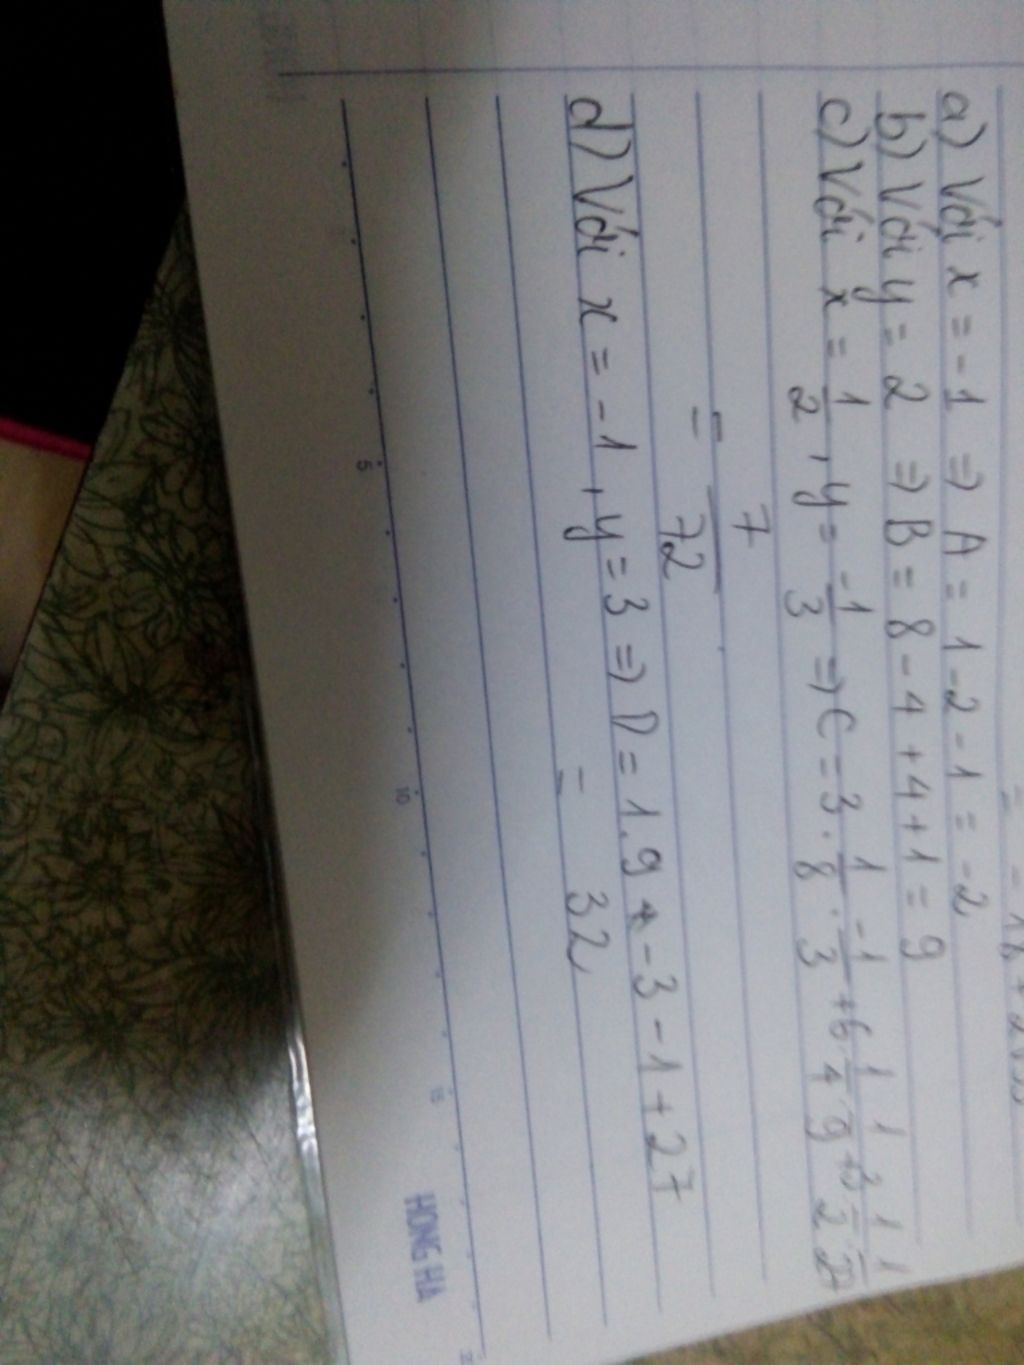 = - 18 + 2
a) Với x = -1 ⇒ A = 1 - 2 - 1 = -2
b) Với y = 2 ⇒ B = 8 - 4 + 4 + 1 = 9
c) Với x = 1/2, y = -1/3 ⇒ C = 3 . 1/8 . -1/3 + 6 1/4 . 1/9 + 3 1/2 . 1/27
= - 7/72
d) Với x = -1, y = 3 ⇒ D = 1.9 + -3 - 1 + 27
= 32
5 10 15
HONG HA